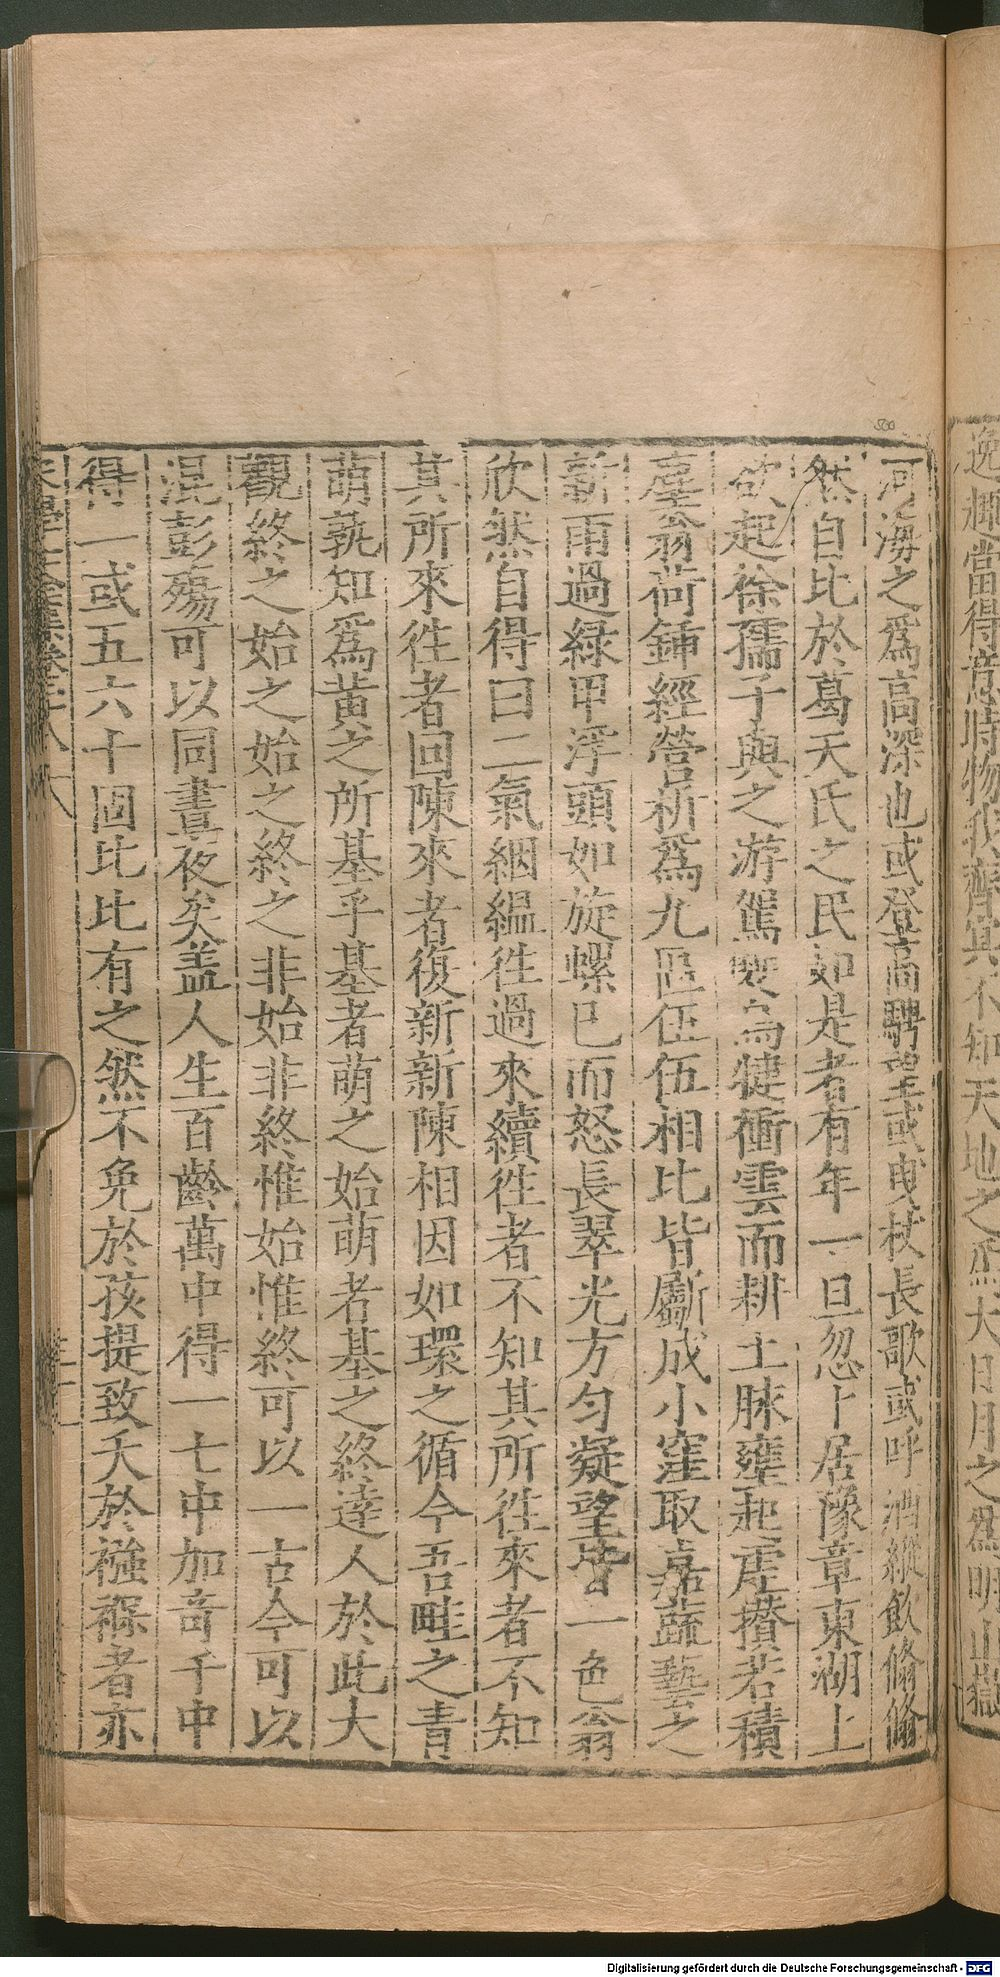 逸趣當得意時物我齊冥不知天地之爲大日月之爲明山嶽
河海之爲高深也或登高騁望或曳杖長歌或呼酒縱飲翛翛
然自比於葛天氏之民如是者有年一旦忽卜居豫章東湖上
欲起徐孺子與之游駕雙烏犍衝雲而耕土脉壅起虛攢若積
塵翁荷鍤經營析爲九區伍伍相比皆斸成小窪取嘉蔬藝之
新雨過綠甲浮頭如旋螺已而怒長翠光方勻凝望皆一色翁
欣然自得曰二氣絪緼徃過來續徃者不知其所徃來者不知
其所來徃者回陳來者復新新陳相因如環之循今吾畦之青
萌孰知爲黃之所基乎基者萌之始萌者基之終達人於此大
觀終之始之始之終之非始非終惟始惟終可以一古今可以
混彭殤可以同晝夜矣盖人生百齡萬中得一七中加奇千中
得一或五六十固比比有之然不免於孩提致夭於襁褓者亦
宋學士全集卷三八
Digitalisierung gefördert durch die Deutsche Forschungsgemeinschaft - DFG